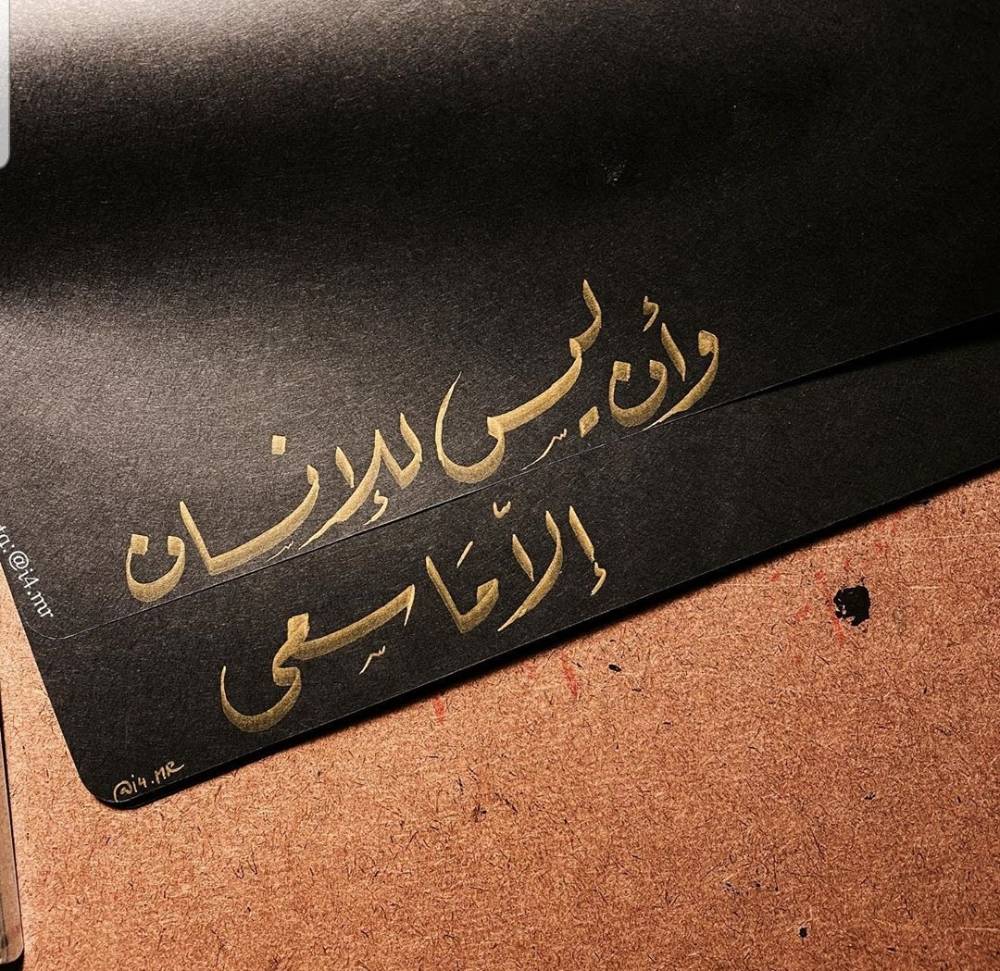 وأن ليس للإنسان
إلاّ مَا سعى
@i4.MR
ta:@i4.mr